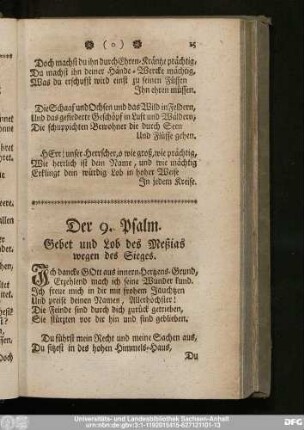 ( o ) 25
Doch machst du ihn durch Ehren-Kräntze prächtig,
Du machst ihn deiner Hände-Wercke mächtig,
Was du erschufst wird einst zu seinen Füssen
Ihn ehren müssen.
Die Schaaf und Ochsen und das Wild in Feldern,
Und das gefiedert Geschöpf in Luft und Wäldern,
Die schüppichten Bewohner die durch Seen
Und Flüsse gehen.
HErr unser Herrscher, o wie groß, wie prächtig,
Wie herrlich ist dein Name, und wie mächtig
Erklingt dein würdig Lob in hoher Weise
In jedem Kreise.
Der 9. Psalm.
Gebet und Lob des Meßias
wegen des Sieges.
Ich dancke GOtt aus innern Hertzens-Grund,
Erzehlend mach ich seine Wunder kund.
Ich freue mich in dir mit frohem Jauchtzen
Und preise deinen Namen, Allerhöchster!
Die Feinde sind durch dich zurück getrieben,
Sie stürtzten vor dir hin und sind geblieben.
Du führst mein Recht und meine Sachen aus,
Du sitzest in des hohen Himmels-Haus,
Du
Universitäts- und Landesbibliothek Sachsen-Anhalt
urn:nbn:de:gbv:3:1-1192015415-627121101-13
DFG